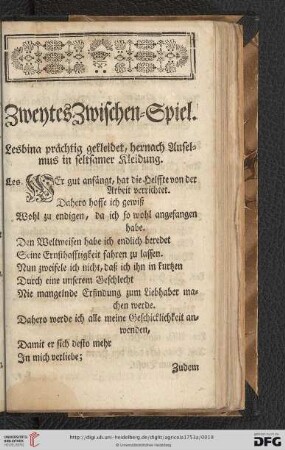 Zweytes Zwischen-Spiel.
Lesbina prächtig gekleidet, hernach Ansel-
mus in seltsamer Kleidung.
Les. WEr gut anfängt, hat die Helffte von der
Arbeit verrichtet.
Dahero hoffe ich gewiß
Wohl zu endigen, da ich so wohl angefangen
habe.
Den Weltweisen habe ich endlich beredet
Seine Ernsthafftigkeit fahren zu lassen.
Nun zweifele ich nicht, daß ich ihn in kurtzen
Durch eine unserem Geschlecht
Nie mangelnde Erfindung zum Liebhaber ma-
chen werde.
Dahero werde ich alle meine Geschicklichkeit an-
wenden,
Damit er sich desto mehr
In mich verliebe;
Zudem
http://digi.ub.uni-heidelberg.de/diglit/
© Universitätsbibliothek Heidelberg
UNIVERSITÄTS-
BIBLIOTHEK
HEIDELBERG
Gefördert durch
DFG